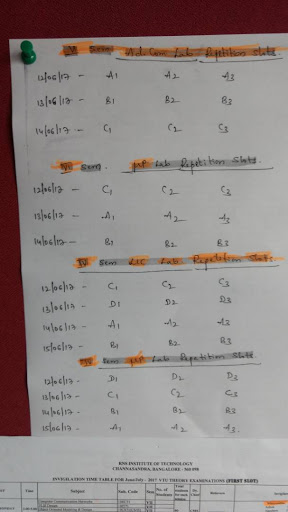 Sem Adv. Com Lab Repetition Slots
12/06/17 - A1 A2 A3
13/06/17 - B1 B2 B3
14/06/17 - C1 C2 C3
Sem. μP Lab Repetition Slots.
12/06/17 - C1 C2 C3
13/06/17 - A1 A2 A3
14/06/17 - B1 B2 B3
IV Sem LIC Lab Repetition Slots.
12/06/17 - C1 C2 C3
13/06/17 - D1 D2 D3
14/06/17 - A1 A2 A3
15/06/17 - B1 B2 B3
IV Sem μP Lab Repetition Slots
12/06/17 - D1 D2 D3
13/06/17 - C1 C2 C3
14/06/17 - B1 B2 B3
15/06/17 - A1 A2 A3
RNS INSTITUTE OF TECHNOLOGY
CHANNASANDRA, BANGALORE - 560 098
INVIGILATION TIME TABLE FOR June/July - 2017 VTU THEORY EXAMINATIONS (FIRST SLOT)
Date Time Subject Sub. Code Sem No. of Students